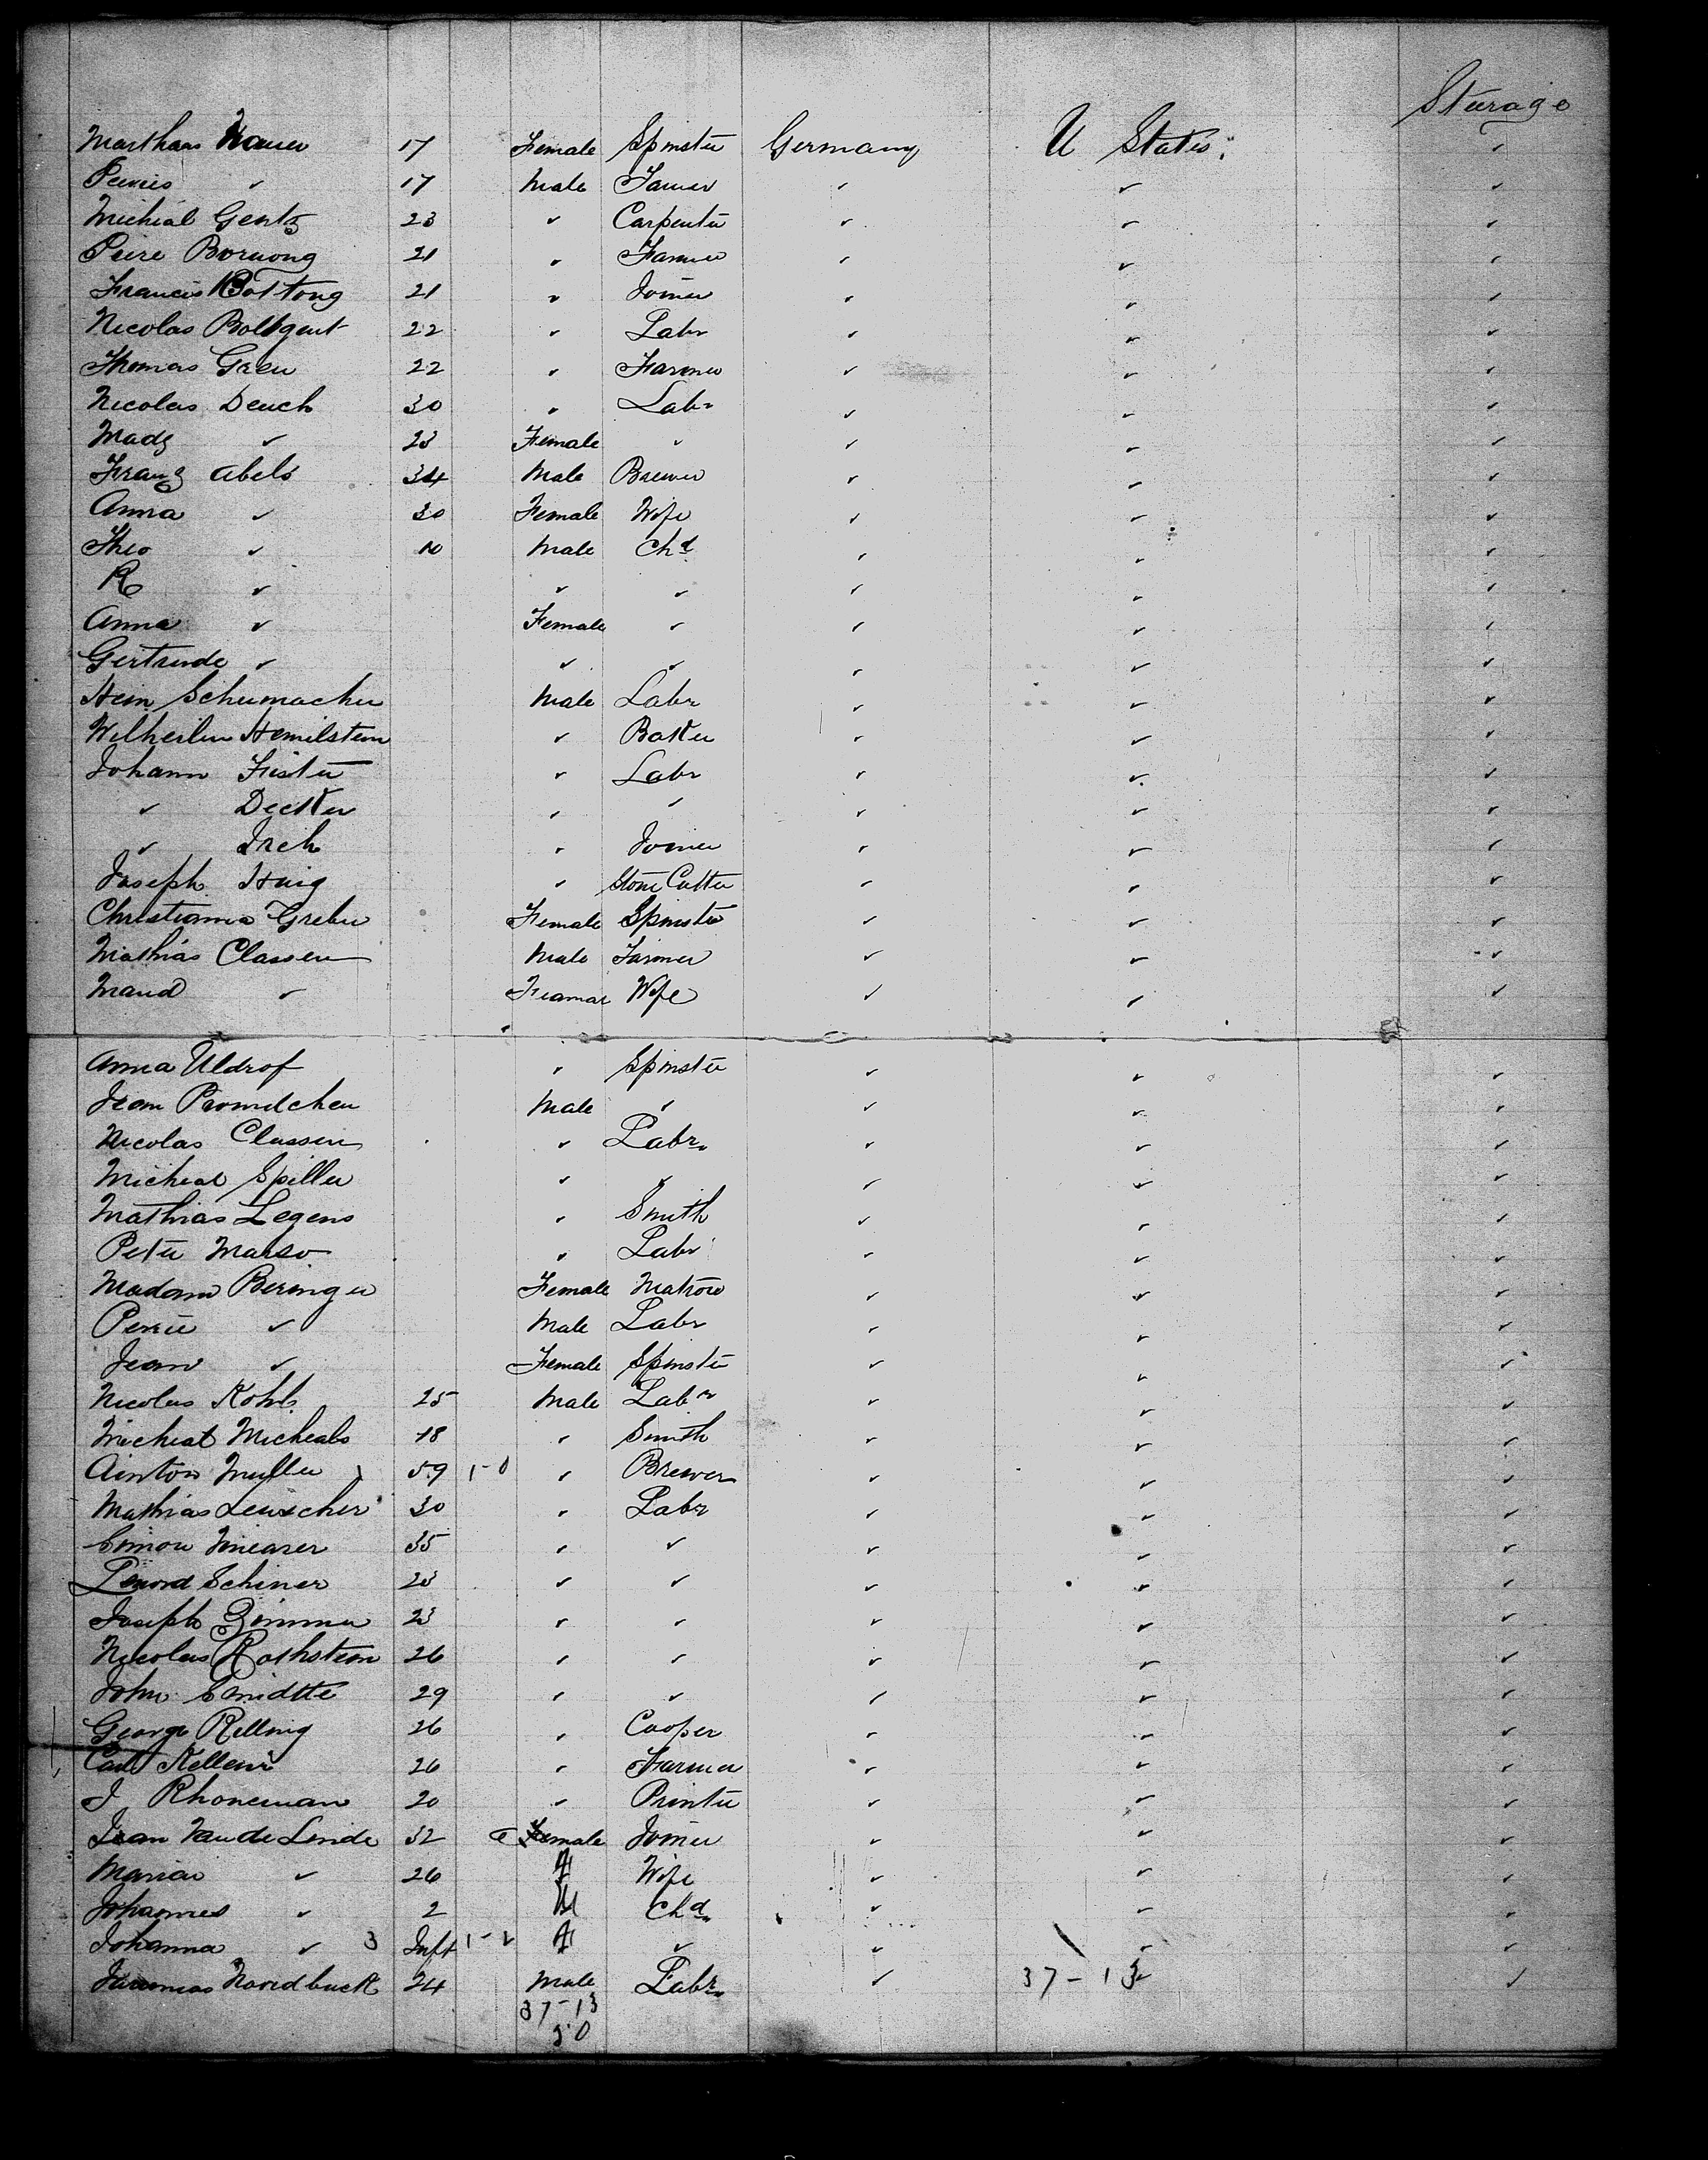 Sturage
Marthaas Naues 17 Female Spinster Germany U States.
Perries ✓ 17 Male Farmer ✓ ✓ ✓
Michial Gentz 23 ✓ Carpenter ✓ ✓ ✓
Peire Boruong 21 ✓ Farmer ✓ ✓ ✓
Francis Bottong 21 ✓ Joiner ✓ ✓ ✓
Nicolas Boltgent 22 ✓ Labr ✓ ✓ ✓
Thomas Greu 22 ✓ Farmer ✓ ✓ ✓
Nicolas Deuch 30 ✓ Labr ✓ ✓ ✓
Madg ✓ 23 Female ✓ ✓ ✓ ✓
Franz Abels 34 Male Brewer ✓ ✓ ✓
Anna ✓ 30 Female Wife ✓ ✓ ✓
Theo ✓ 10 Male Chd ✓ ✓ ✓
R ✓ ✓ ✓ ✓ ✓ ✓
Anna ✓ Female ✓ ✓ ✓ ✓
Gertrude ✓ ✓ ✓ ✓ ✓ ✓
Hein Schumacher Male Labr ✓ ✓ ✓
Wilherlin Hemilstein ✓ Baker ✓ ✓ ✓
Johann Fister ✓ Labr ✓ ✓ ✓
✓ Decker ✓ ✓ ✓ ✓ ✓
✓ Irch ✓ Joiner ✓ ✓ ✓
Joseph Huig ✓ Stone Cutter ✓ ✓ ✓
Christianna Greber Female Spinster ✓ ✓ ✓
Mathias Classen Male Farmer ✓ ✓ ✓
Maud ✓ Wife ✓ ✓ ✓
Anna Uldrof ✓ Spinster ✓ ✓ ✓
Jean Promdchen Male ✓ ✓ ✓ ✓
Nicolas Classen ✓ Labr ✓ ✓ ✓
Micheal Spiller ✓ ✓ ✓ ✓ ✓
Mathias Legens ✓ Smith ✓ ✓ ✓
Peter Marso ✓ Labr ✓ ✓ ✓
Madam Beringer Female Matron ✓ ✓ ✓
Perrie ✓ Male Labr ✓ ✓ ✓
Jean ✓ Female Spinster ✓ ✓ ✓
Nicolas Kohls 25 Male Labr ✓ ✓ ✓
Micheal Micheals 18 ✓ Smith ✓ ✓ ✓
Ainton Muller 59 1-0 ✓ Brewer ✓ ✓ ✓
Mathias Leuscher 30 ✓ Labr ✓ ✓ ✓
Simon Miearer 35 ✓ ✓ ✓ ✓ ✓
Lenord Schiner 23 ✓ ✓ ✓ ✓ ✓
Joseph Zimmer 23 ✓ ✓ ✓ ✓ ✓
Nicolas Rothstein 26 ✓ ✓ ✓ ✓ ✓
John Smidtte 29 ✓ ✓ ✓ ✓ ✓
George Relling 26 ✓ Cooper ✓ ✓ ✓
Carl Kellein 26 ✓ Farmer ✓ ✓ ✓
J Rhoneman 20 ✓ Printer ✓ ✓ ✓
Jean Van de Linde 32 Female Joiner ✓ ✓ ✓
Maria ✓ 26 F Wife ✓ ✓ ✓
Johannes ✓ 2 M Chd ✓ ✓ ✓
Johanna ✓ 3 Inft 1-2 F ✓ ✓ ✓ ✓
Noordbuck 24 Male Labr ✓ 37-13 ✓ ✓
37-13
50